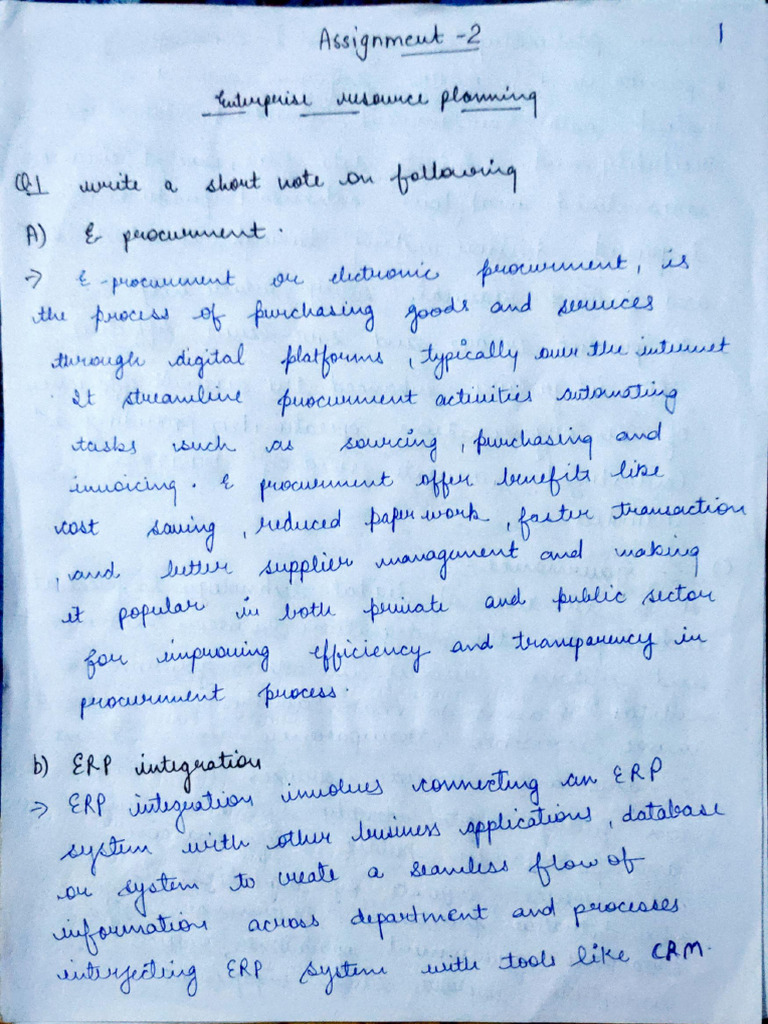 1
Assignment -2
Enterprise resource planning
Q1 write a short note on following
A) E procurment.
→ E-procurment or electronic procurment, is
the process of purchasing goods and services
through digital platforms, typically over the internet
It streamline procurment activities automating
tasks such as sourcing, purchasing and
invoicing. E procurment offer benefits like
cost saving, reduced paper work, faster transaction
, and better supplier management and making
it popular in both private and public sector
for improving efficiency and transparency in
procurment process.
b) ERP integration
→ ERP integration involves connecting an ERP
system with other business applications, database
or system to create a seamless flow of
information across department and processes
interjecting ERP system with tools like CRM.